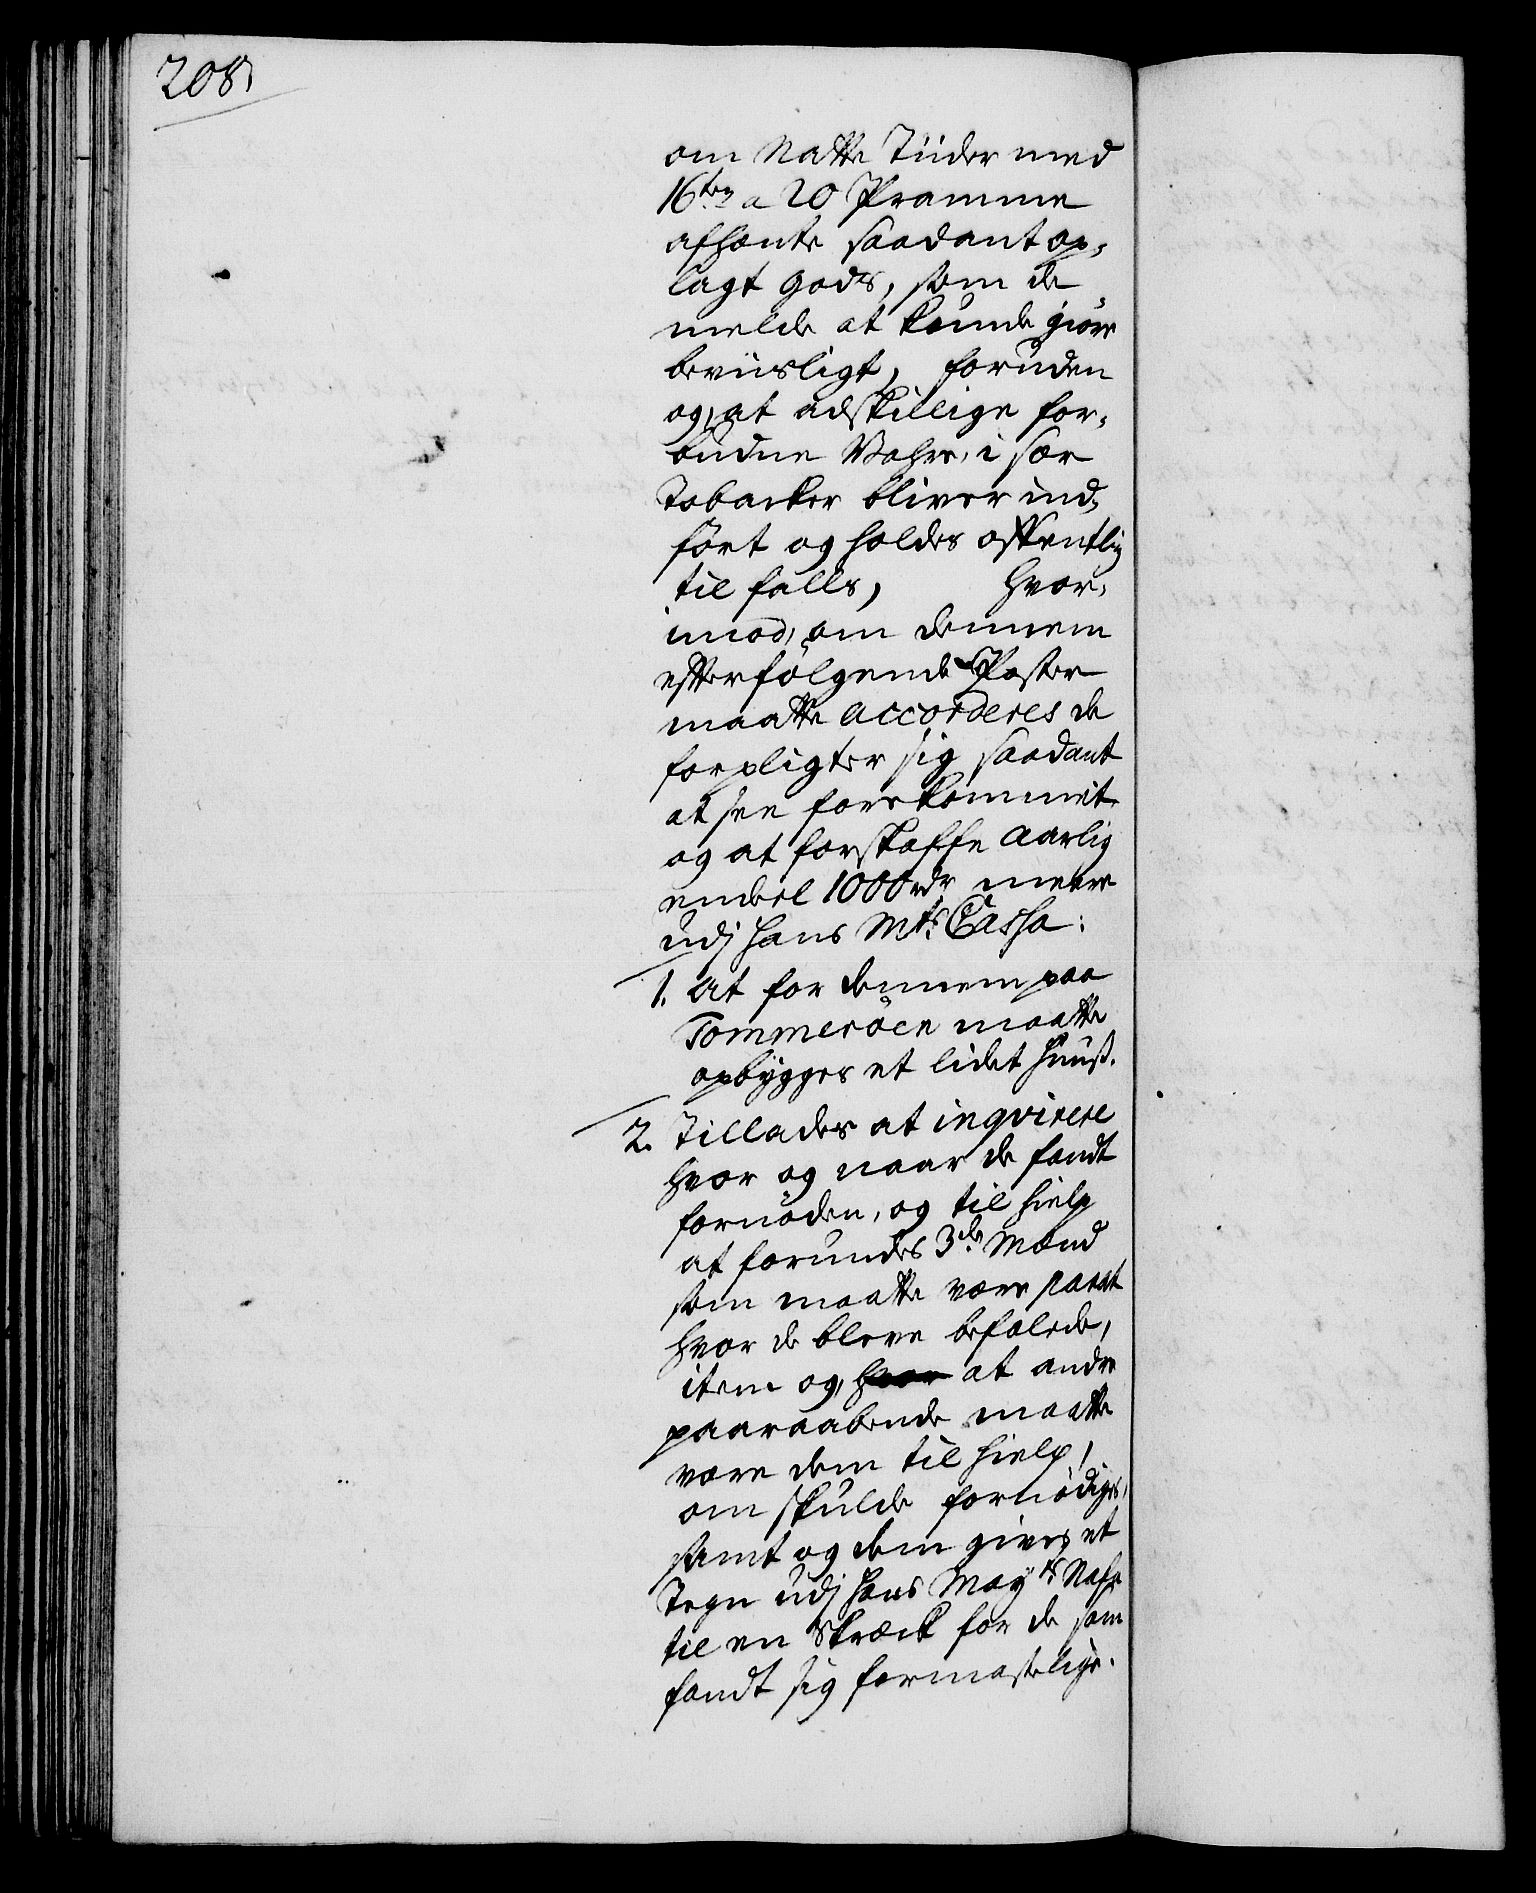 208
om Natte Tiider med
16ten a 20 Pramme
afhente saadant op,
lagt Gods, som de
melde at kunde giöre
beviisligt, foruden
og, at adskillige for,
budne Vahre, i sær
Tobacker bliver ind,
fört og holdes offentlig
til falls, hvor,
imod, om dennem
efterfölgende Poster
maatte accorderes de
forpligter sig saadant
at see forekommet
og at forskaffe aarlig
endeel 1000 rdr meere
udj Hans Mts. Cassa:
1. At for dennem paa
Tommeröen maatte
opbygges et lidet Huuss.
2. Tillades at inqvirere
hvor og naar de fandt
fornöden, og til hielp
at forundes 3de Mænd
som maatte være parat
hvor de bleve befalede,
item og, hvor at andre
paaraabende maatte
være dem til hielp,
om skulde fornödiges,
samt og dem gives et
Tegn udj Hans Mayts Nafn
til en Skræck for de som
fandt sig formastelige.